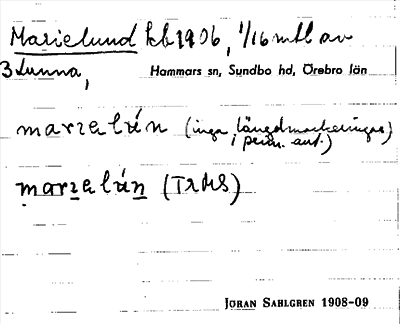 Marielund kb 1906, 1/16 mtl av
3 Lunna,
Hammars sn, Sundbo hd, Örebro län
marɪalún (inga längdmarkeringar
i penn. ant.)
marɪalún (TRMS)
JÖRAN SAHLGREN 1908-09